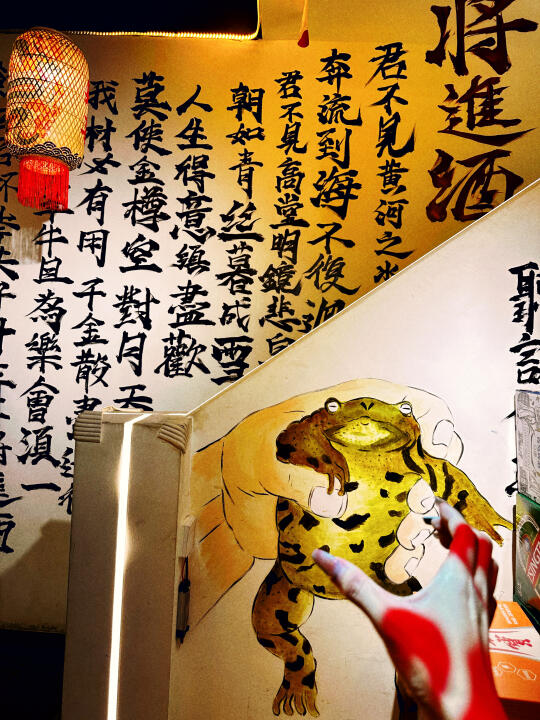 將進酒
君不見黃河之水
奔流到海不復迴
君不見高堂明鏡悲白
朝如青丝暮成雪
人生得意須盡歡
莫使金樽空對月天
我材必有用千金散盡
牛且為樂會須一
杯岑夫子丹丘生將進酒